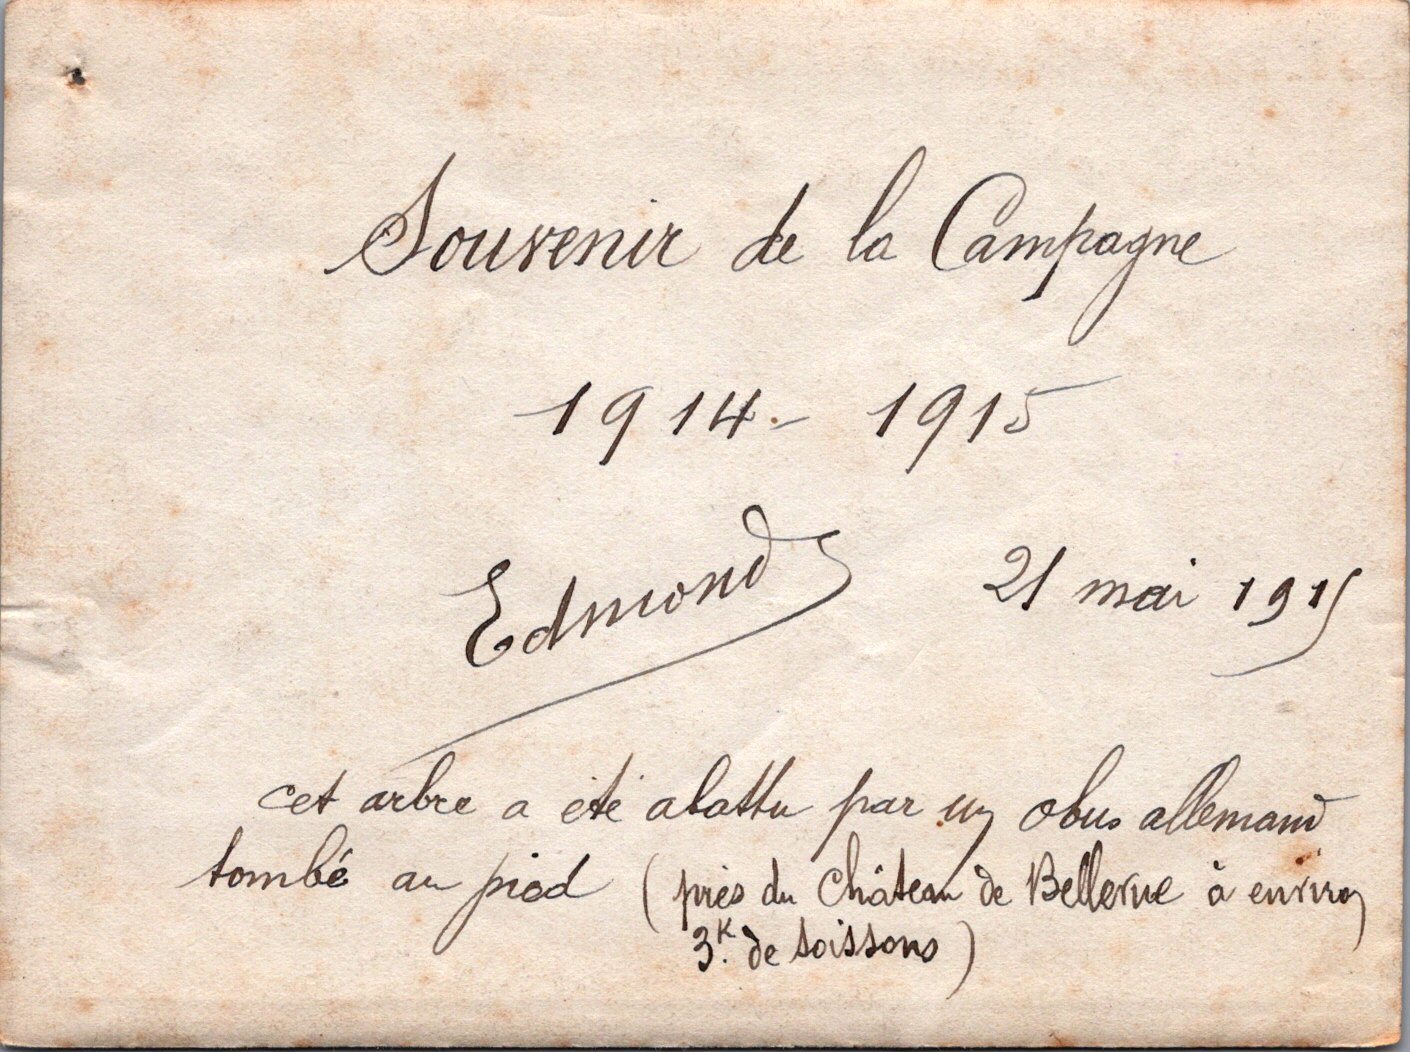 Souvenir de la Campagne
1914 - 1915
Edmond 21 mai 1915
cet arbre a été abattu par un obus allemand
tombé au pied (près du Château de Bellevue à environ
3K. de Soissons)